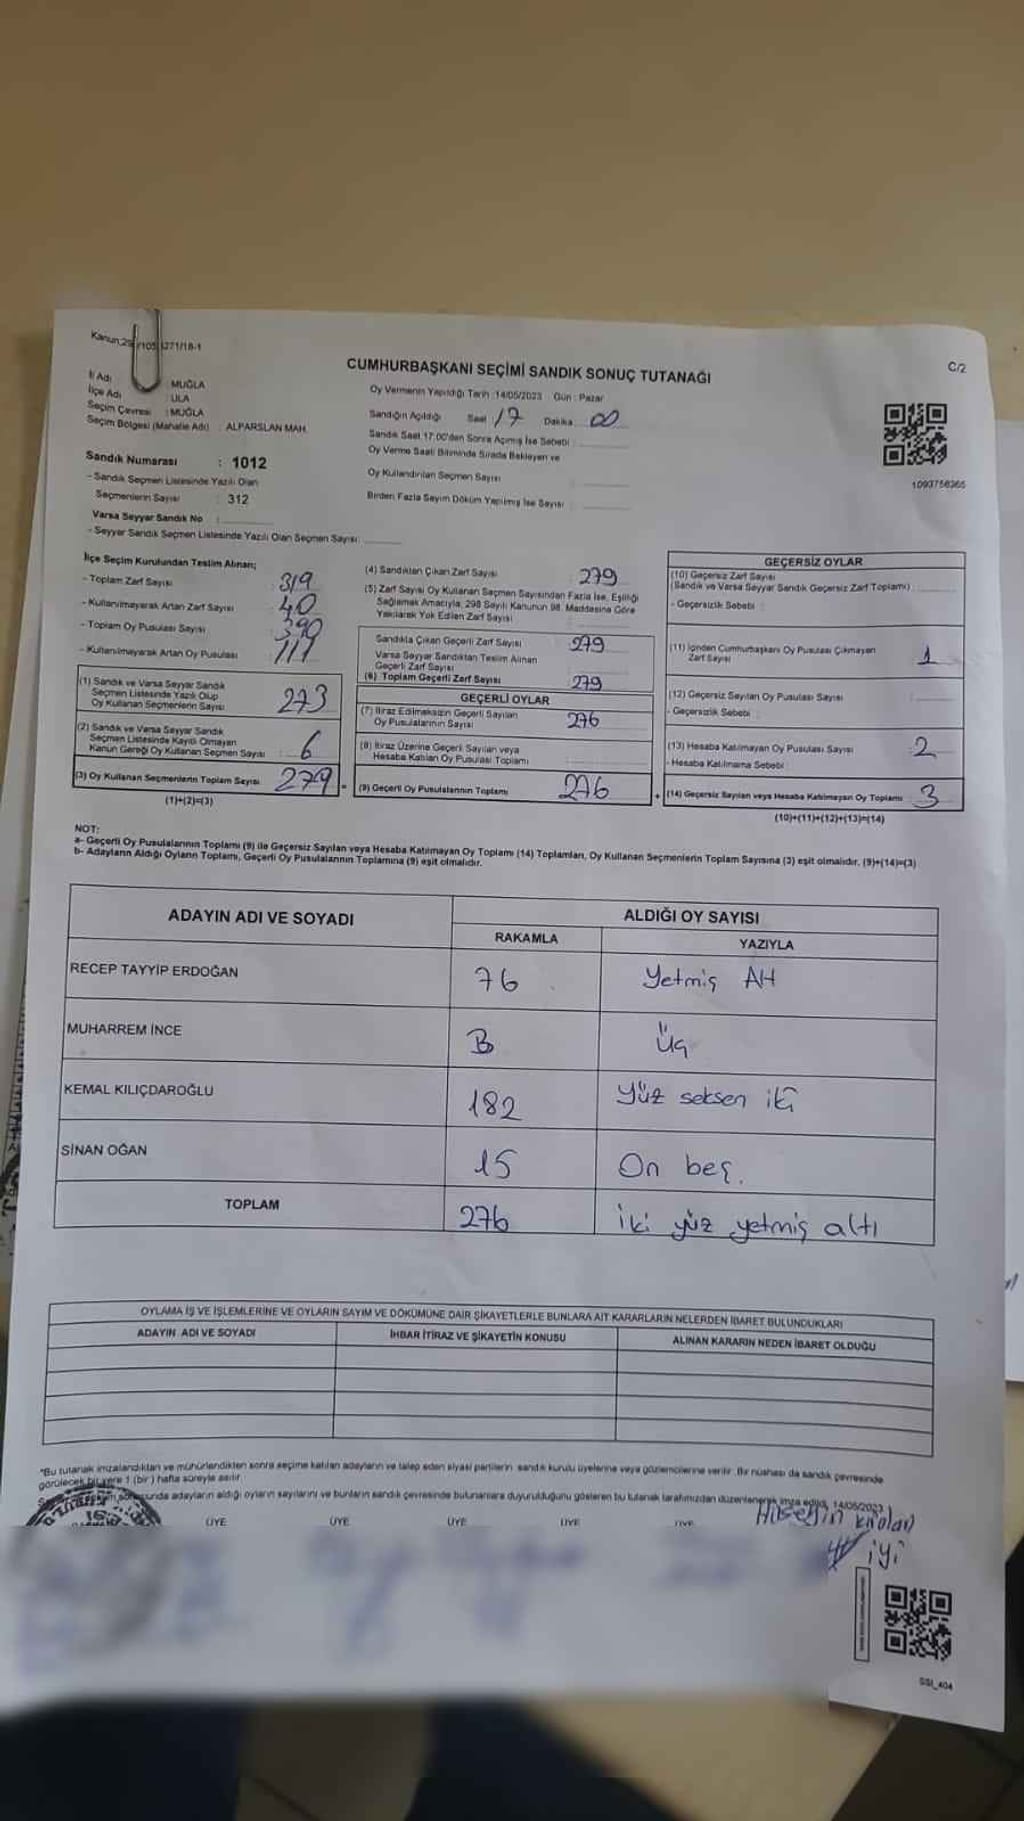 C/2
CUMHURBAŞKANI SEÇİMİ SANDIK SONUÇ TUTANAĞI
İl Adı : MUĞLA
İlçe Adı : ULA
Seçim Çevresi : MUĞLA
Seçim Bölgesi (Mahalle Adı) : ALPARSLAN MAH.
Sandık Numarası : 1012
- Sandık Seçmen Listesinde Yazılı Olan
Seçmenlerin Sayısı : 312
Varsa Seyyar Sandık No :
- Seyyar Sandık Seçmen Listesinde Yazılı Olan Seçmen Sayısı:
Oy Vermenin Yapıldığı Tarih :14/05/2023 Gün : Pazar
Sandığın Açıldığı Saat : 17 Dakika : 00
Sandık Saat 17:00'den Sonra Açılmış İse Sebebi :
Oy Verme Saati Bitiminde Sırada Bekleyen ve
Oy Kullandırılan Seçmen Sayısı :
Birden Fazla Sayım Döküm Yapılmış İse Sayısı :
1093756365
İlçe Seçim Kurulundan Teslim Alınan;
- Toplam Zarf Sayısı : 319
- Kullanılmayarak Artan Zarf Sayısı : 40
- Toplam Oy Pusulası Sayısı : 390
- Kullanılmayarak Artan Oy Pusulası : 111
(1) Sandık ve Varsa Seyyar Sandık
Seçmen Listesinde Yazılı Olup
Oy Kullanan Seçmenlerin Sayısı : 273
(2) Sandık ve Varsa Seyyar Sandık
Seçmen Listesinde Kayıtlı Olmayan
Kanun Gereği Oy Kullanan Seçmen Sayısı : 6
(3) Oy Kullanan Seçmenlerin Toplam Sayısı : 279
(1)+(2)=(3)
(4) Sandıktan Çıkan Zarf Sayısı : 279
(5) Zarf Sayısı Oy Kullanan Seçmen Sayısından Fazla İse, Eşitliği
Sağlamak Amacıyla, 298 Sayılı Kanunun 98. Maddesine Göre
Yakılarak Yok Edilen Zarf Sayısı :
Sandıkta Çıkan Geçerli Zarf Sayısı : 279
Varsa Seyyar Sandıktan Teslim Alınan
Geçerli Zarf Sayısı
(6) Toplam Geçerli Zarf Sayısı : 279
GEÇERLİ OYLAR
(7) İtiraz Edilmeksizin Geçerli Sayılan
Oy Pusulalarının Sayısı : 276
(8) İtiraz Üzerine Geçerli Sayılan veya
Hesaba Katılan Oy Pusulası Toplamı :
(9) Geçerli Oy Pusulalarının Toplamı : 276
GEÇERSİZ OYLAR
(10) Geçersiz Zarf Sayısı
(Sandık ve Varsa Seyyar Sandık Geçersiz Zarf Toplamı) :
- Geçersizlik Sebebi :
(11) İçinden Cumhurbaşkanı Oy Pusulası Çıkmayan
Zarf Sayısı : 1
(12) Geçersiz Sayılan Oy Pusulası Sayısı :
- Geçersizlik Sebebi :
(13) Hesaba Katılmayan Oy Pusulası Sayısı : 2
- Hesaba Katılmama Sebebi :
(14) Geçersiz Sayılan veya Hesaba Katılmayan Oy Toplamı : 3
(10)+(11)+(12)+(13)=(14)
NOT:
a- Geçerli Oy Pusulalarının Toplamı (9) ile Geçersiz Sayılan veya Hesaba Katılmayan Oy Toplamı (14) Toplamları, Oy Kullanan Seçmenlerin Toplam Sayısına (3) eşit olmalıdır. (9)+(14)=(3)
b- Adayların Aldığı Oyların Toplamı, Geçerli Oy Pusulalarının Toplamına (9) eşit olmalıdır.
ADAYIN ADI VE SOYADI ALDIĞI OY SAYISI
RAKAMLA YAZIYLA
RECEP TAYYİP ERDOĞAN 76 Yetmiş Altı
MUHARREM İNCE 3 Üç
KEMAL KILIÇDAROĞLU 182 Yüz seksen iki
SİNAN OĞAN 15 On beş.
TOPLAM 276 İki yüz yetmiş altı
OYLAMA İŞ VE İŞLEMLERİNE VE OYLARIN SAYIM VE DÖKÜMÜNE DAİR ŞİKAYETLERLE BUNLARA AİT KARARLARIN NELERDEN İBARET BULUNDUKLARI
ADAYIN ADI VE SOYADI İHBAR İTİRAZ VE ŞİKAYETİN KONUSU ALINAN KARARIN NEDEN İBARET OLDUĞU
*Bu tutanak imzalandıktan ve mühürlendikten sonra seçime katılan adayların ve talep eden siyasi partilerin sandık kurulu üyelerine veya gözlemcilerine verilir. Bir nüshası da sandık çevresinde
görülecek bir yere 1 (bir) hafta süreyle asılır.
adayların aldığı oyların sayılarını ve bunların sandık çevresinde bulunanlara duyurulduğunu gösteren bu tutanak tarafımızdan düzenlenerek imza edildi. 14/05/2023
ÜYE ÜYE ÜYE ÜYE ÜYE
Hüseyin
İYİ
SSI_404